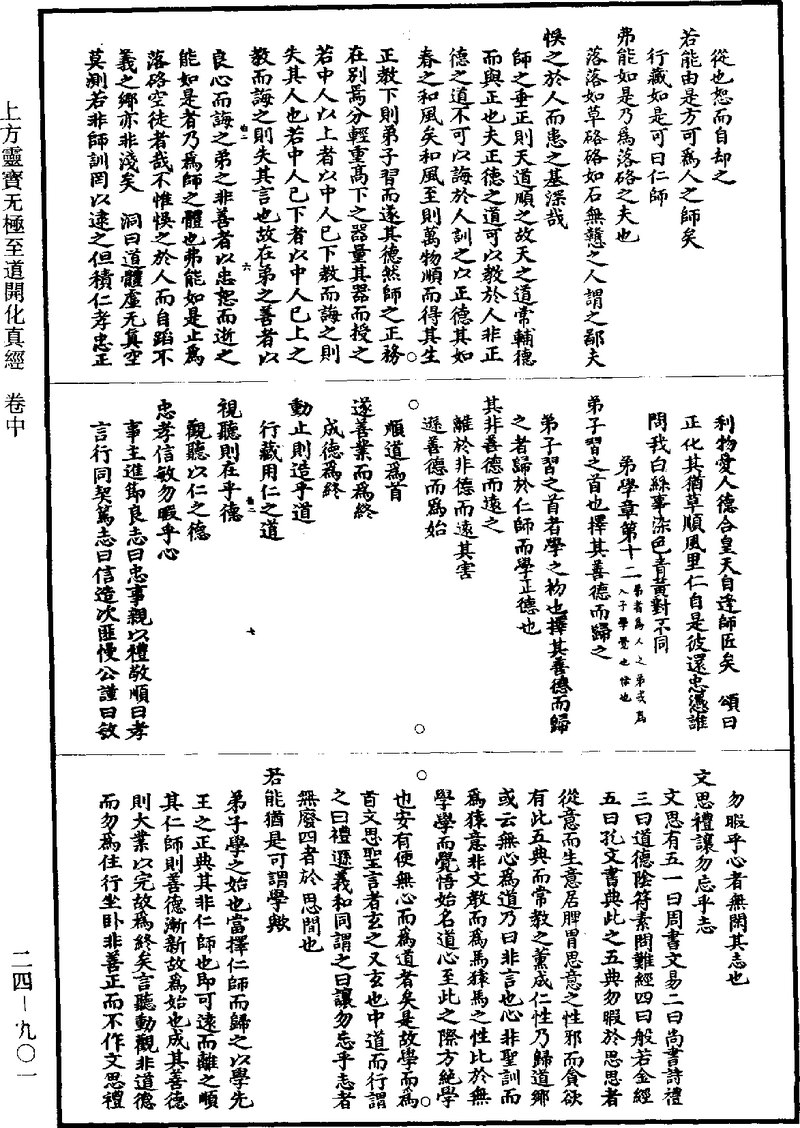 從也恕而自却之
若能由是方可為人之師矣
行藏如是可曰仁師
弗能如是乃為落硌之夫也
落落如草硌硌如石無慧之人謂之鄙夫
悞之於人而患之基深哉
師之垂正則天道順之故天之道常輔德
而與正也夫正德之道可以教於人非正
德之道不可以誨於人訓之以正德其如
春之和風矣和風至則萬物順而得其生
正教下則弟子習而遂其德然師之正務
在別焉分輕重高下之器量其器而授之
若中人以上者以中人已下教而誨之則
失其人也若中人已下者以中人已上之
教而誨之則失其言也故在弟之善者以
良心而誨之弟之非善者以忠恕而逝之
能如是者乃為師之體也弗能如是止為
落硌空徒者哉不惟悞之於人而自蹈不
義之鄉亦非淺矣　洞曰道體虛无真空
莫測若非師訓罔以逮之但積仁孝忠正
卷二　六
利物愛人德合皇天自逢師匠矣　頌曰
正化其猶草順風里仁自是彼還忠憑誰
問我白絲事染色青黃對不同
弟學章第十二弟者為人之弟或為人子學覺也悟也
弟子習之首也擇其善德而歸之
弟子習之首者學之初也擇其善德而歸
之者歸於仁師而學正德也
其非善德而遠之
離於非德而遠其害
遜善德而為始
順道為首
遂善業而為終
成德為終
動止則造乎道
行藏用仁之道
視聽則在乎德
觀聽以仁之德
忠孝信敏勿暇乎心
事主進節良志曰忠事親以禮敬順曰孝
言行同契篤志曰信造次匪慢公謹曰敏
卷二　七
勿暇乎心者無閑其志也
文思禮讓勿忘乎志
文思有五一曰周書文易二曰尚書詩禮
三曰道德陰符素問難經四曰般若金經
五曰孔文書典此之五典勿暇於思思者
從意而生意居脾胃思意之性邪而貪欲
有此五典而常教之薰成仁性乃歸道鄉
或云無心為道乃曰非言也心非聖訓而
為猿意非文教而為馬猿馬之性比於無
學學而覺悟始名道心至此之際方絕學
也安有便無心而為道者矣是故學而為
首文思聖言者玄之又玄也中道而行謂
之曰禮遜義和同謂之曰讓勿忘乎志者
無廢四者於思間也
若能猶是可謂學歟
弟子學之始也當擇仁師而歸之以學先
王之正典其非仁師也即可遠而離之順
其仁師則善德漸新故為始也成其善德
則大業以完故為終矣言聽動觀非道德
而勿為住行坐臥非善正而不作文思禮
上方靈寶无極至道開化真經　卷中
二四—九〇一